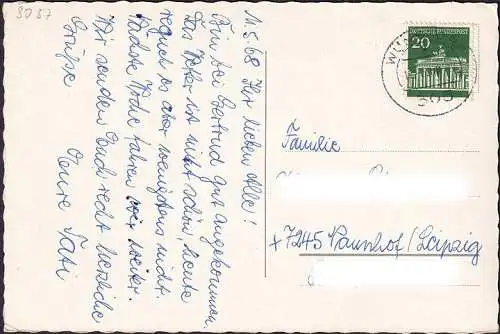 3057
11.5.68 Ihr lieben Alle!
Bin bei Gertrud gut angekommen.
Das Wetter ist nicht schön, heute
regnet es aber wenigstens nicht.
Nächste Woche fahren wir weiter.
Wir senden Euch recht herzliche
Grüße Eure Tati
20
DEUTSCHE BUNDESPOST
Familie
+ 7245 Naunhof/Leipzig